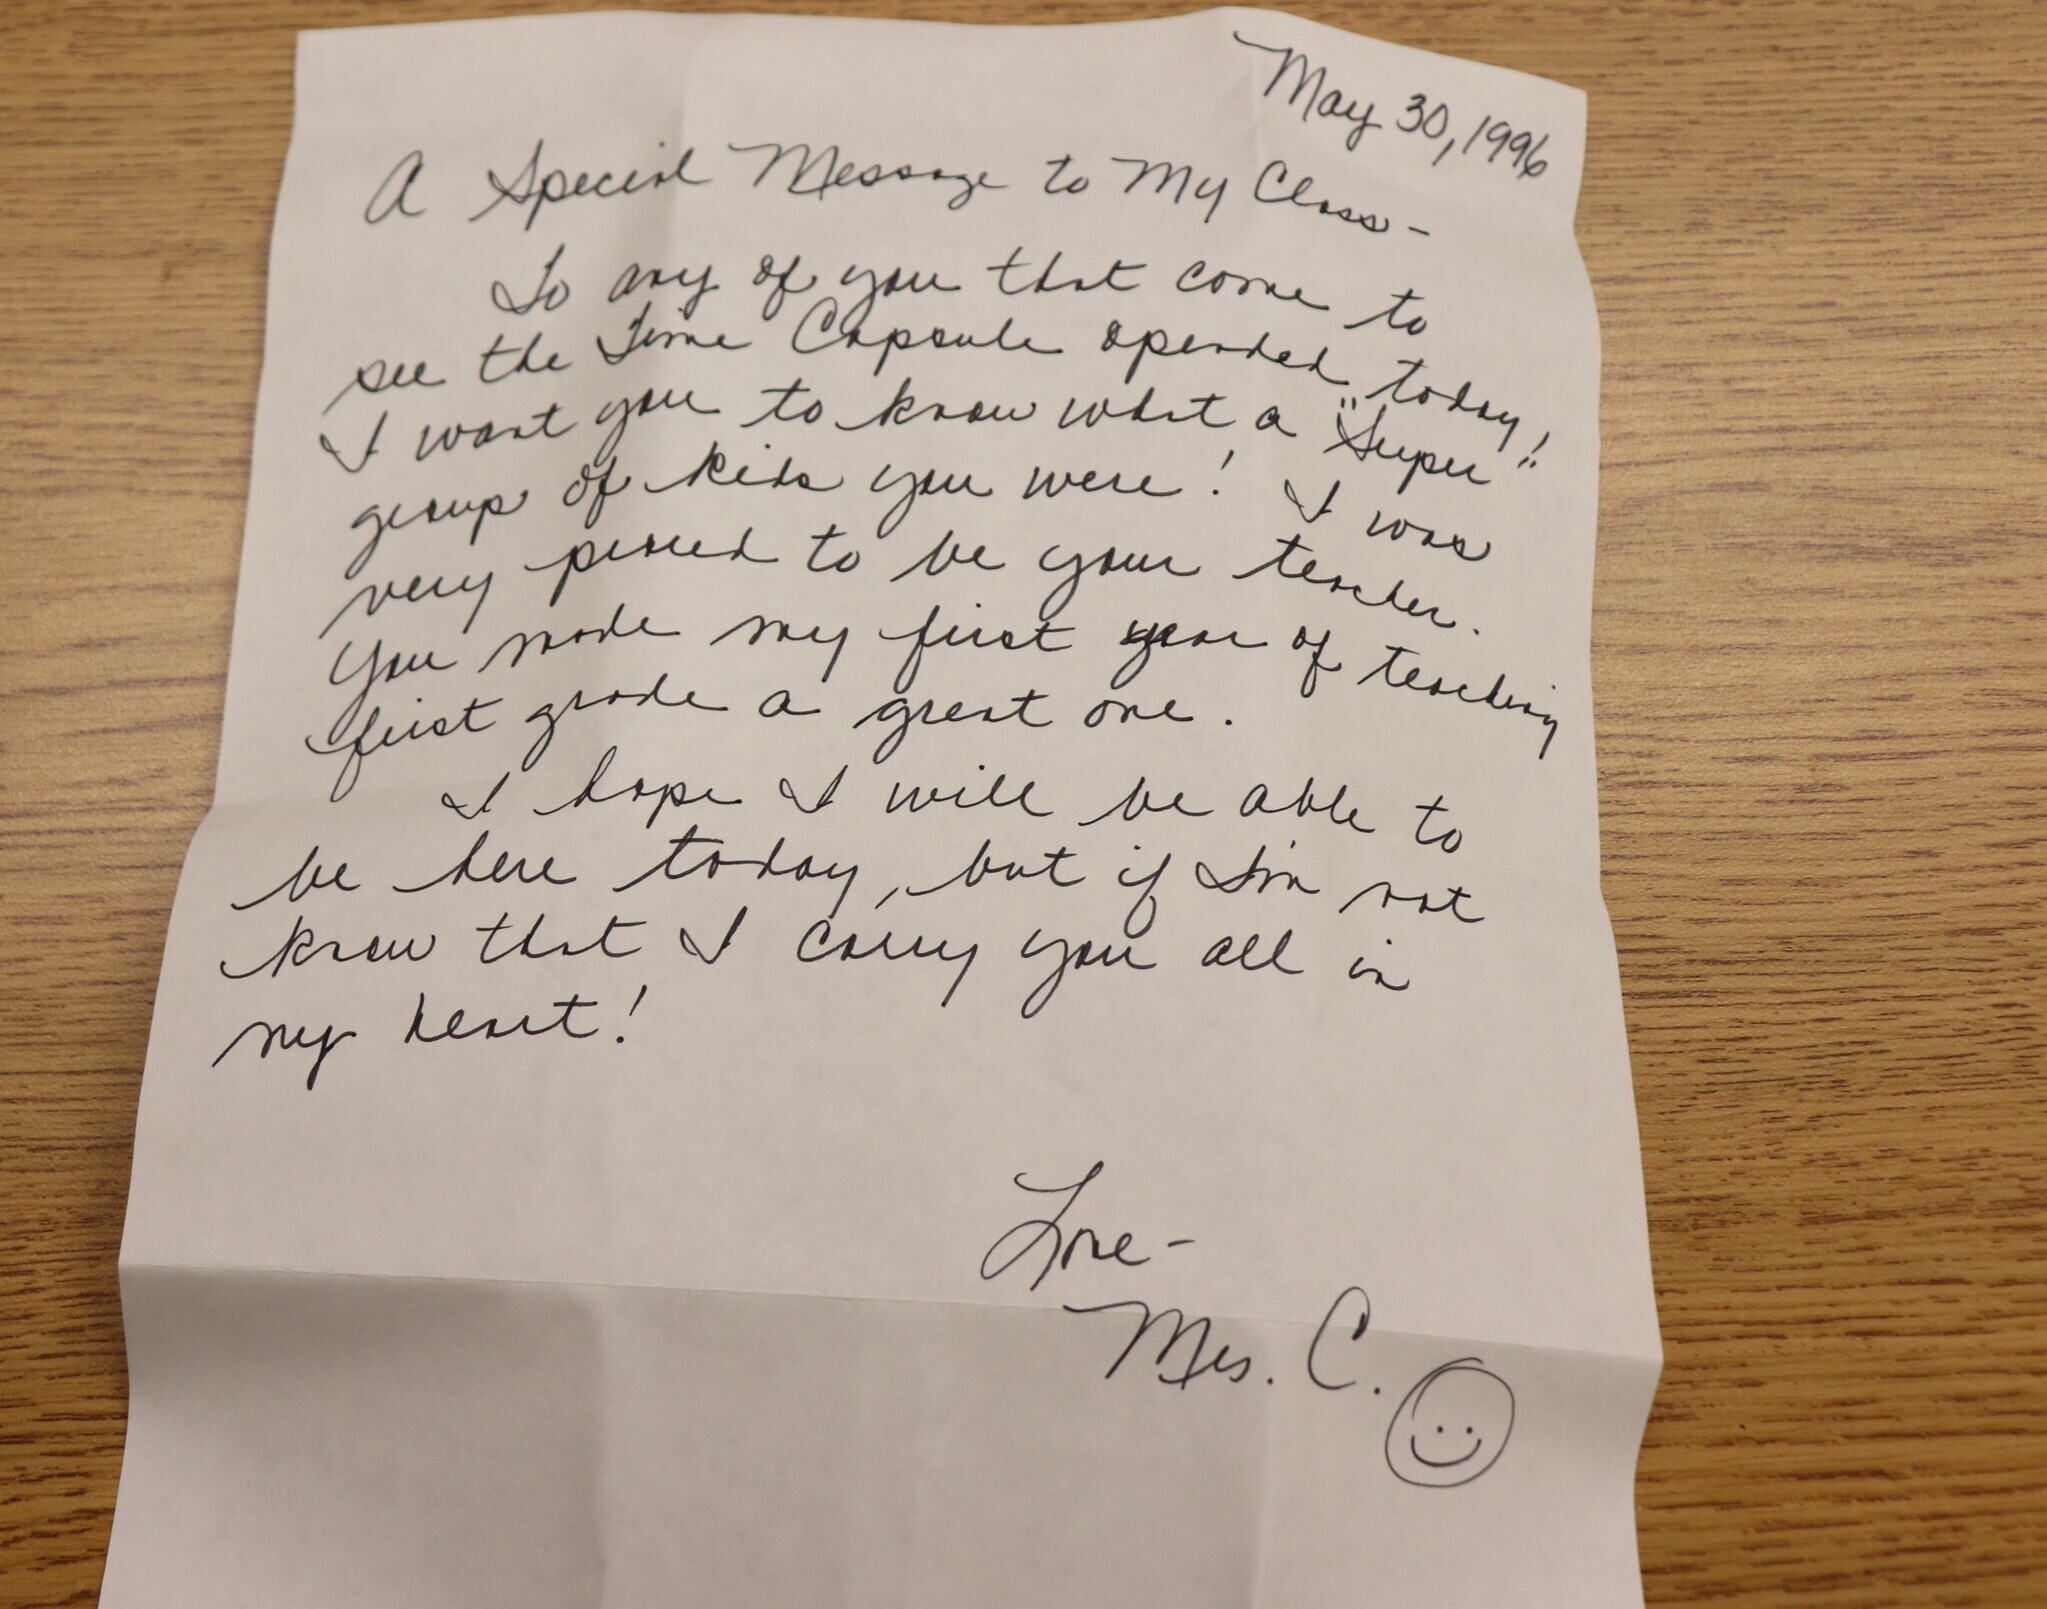 May 30, 1996
A Special Message to My Class -
To any of you that come to
see the Time Capsule opended today!
I want you to know what a "Super"
group of kids you were! I was
very proud to be your teacher.
You made my first year of teaching
first grade a great one.
I hope I will be able to
be here today, but if I'm not
know that I carry you all in
my heart!
Love -
Mrs. C.